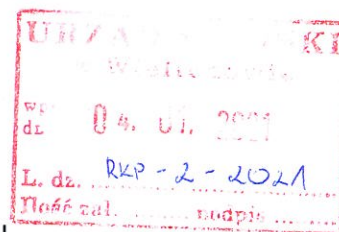 URZĄD MIEJSKI
wpł.
dn. 04. 01. 2021
L. dz. RKP - 2 - 2021
Ilość zał. ........ podpis ........